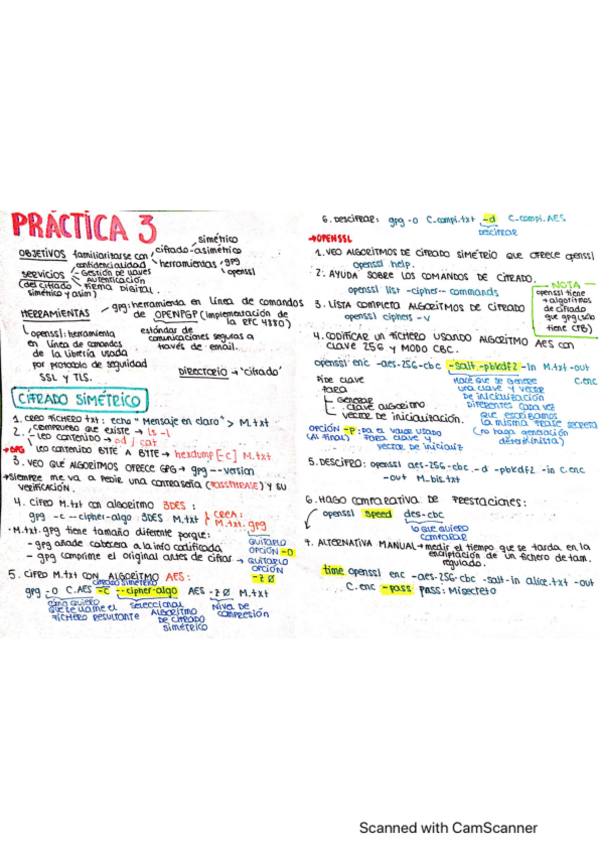 PRÁCTICA 3
OBJETIVOS familiarizarse con
cifrado
simétrico
asimétrico
herramientas
gpg
openssl
SERVICIOS
(del cifrado
simétrico y asim)
- confidencialidad
- Gestión de llaves
- autenticación
- Firma Digital.
HERRAMIENTAS
gpg: herramienta en línea de comandos
de OPENPGP (Implementación de
la RFC 4880)
estándar de
comunicaciones seguras a
través de email.
openssl: herramienta
en línea de comandos
de la librería usada
por protocolo de seguridad
SSL y TLS.
DIRECTORIO → 'cifrado'
CIFRADO SIMÉTRICO
1. creo fichero txt: echo "Mensaje en claro" > M.txt
2. compruebo que existe → ls -l
leo contenido → od / cat
leo contenido BYTE A BYTE → hexdump [-c] M.txt
→ GPG
3. VEO QUE ALGORITMOS OFRECE GPG → gpg --version
→ siempre me va a pedir una contraseña (PASSPHRASE) y su
verificación.
4. Cifro M.txt con algoritmo 3DES:
gpg -c --cipher-algo 3DES M.txt
CREA:
M.txt.gpg
· M.txt.gpg tiene tamaño diferente porque:
- gpg añade cabecera a la info codificada
QUITARLO
OPCIÓN -O
- gpg comprime el original antes de cifrar
→ QUITARLO
OPCIÓN
-z 0
5. CIFRO M.txt CON ALGORITMO AES:
CIFRADO SIMÉTRICO
gpg -o C.AES -c --cipher-algo AES -z 0 M.txt
cómo quiero
que se llame el
fichero resultante
seleccionar
ALGORITMO
DE CIFRADO
SIMÉTRICO
NIVEL DE
COMPRESIÓN
6. DESCIFRAR: gpg -o C_compi.txt -d C_compi.AES
DESCIFRAR
→ OPENSSL
1. VEO ALGORITMOS DE CIFRADO SIMÉTRICO QUE OFRECE openssl
openssl help.
2. AYUDA SOBRE LOS COMANDOS DE CIFRADO.
openssl list -cipher-- commands
3. LISTA COMPLETA ALGORITMOS DE CIFRADO
openssl ciphers -v
NOTA
openssl tiene
+ algoritmos
de cifrado
que gpg (solo
tiene CFB)
4. CODIFICAR UN FICHERO USANDO ALGORITMO AES CON
CLAVE 256 Y MODO CBC.
openssl enc -aes-256-cbc -salt -pbkdf2 -in M.txt -out
C.enc
Pide clave
para
- Generar
clave algoritmo
- vector de inicialización.
HACE QUE SE GENERE
una clave y vector
de inicialización
DIFERENTES CADA VEZ
que escribamos
la misma frase secreta
(no haga generación
determinista)
OPCIÓN -P: da el valor usado
(AL FINAL) para clave y
vector de inicializ
5. DESCIFRO: openssl aes-256-cbc -d -pbkdf2 -in C.enc
-out M_bis.txt
6. HAGO COMPARATIVA DE PRESTACIONES:
openssl speed des-cbc
lo que quiero
comparar
7. ALTERNATIVA MANUAL → medir el tiempo que se tarda en la
encriptación de un fichero de tam.
regulado.
time openssl enc -aes-256-cbc -salt -in alice.txt -out
C.enc -pass pass: Misecreto
Scanned with CamScanner